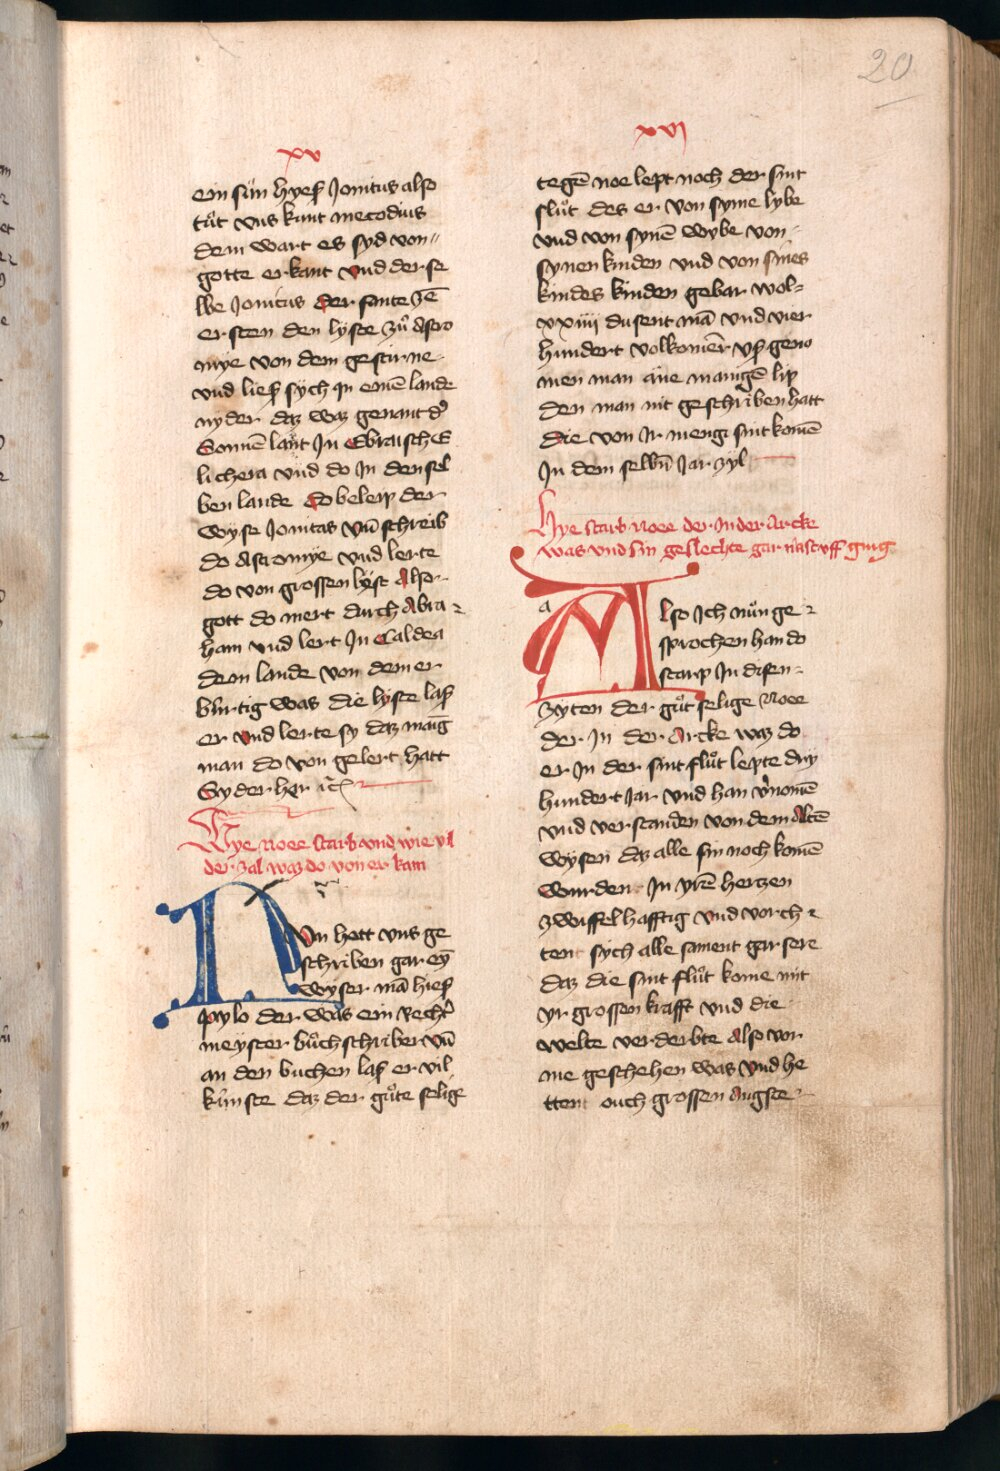 20
xv
ein sün hyeß Jonitus also
tůt vns kunt metodius
dem wart es syd von
gotte erkant vnd der se
lbe Jonitus der fante zē
ersten den lyste zů Astro
mye von dem gestirne
vnd ließ sych In einē lande
nyder daz waz genant dʼ
Sonnē lant In Ebraisches
lichera vnd do In densel
ben lande do beleip der
wyse Jonitas vn̄ schreib
do Astromye vnd lerte
do von grossen lyst Also
gott do mert durch Abra
ham vnd lert In Caldea
dem lande von dem er
bürtig was die lyste laß
er vnd lerte sy daz manig
man do von gelert hatt
Syder her
Wye Noee starb vnd wie vil
der zal waz do von er kam
Nun hett vns ge
schriben gar eyn
wyser mā hieß
pylo der was ein rechtʼ
meyster bůchschriber vn̄
an den buchen laß er vil
künste daz der gůte selige
xvi
tegē noe lept noch der sint
flůt des er von syme lybe
vnd von synē wybe von
synen kinden vnd von sines
kindes kinden gebar wol
xxiiii dusent mā vnd vier
hundert volkomēr vß geno
men man ane manigē lip
den man nit geschriben hatt
die von Ir mengi sint komē
In dem selbn̄ Jar zyl
Hye starb Noee der In der Arcke
was vnd sin geslechte gar vast vff ging
a
Also Ich nůn ge
sprochen han do
starp In disen
zyten der gůt selige Noee
der In der Arcke waz do
er In der sint flůt lepte dry
hundert Jar vnd han vʼnomē
vnd verstanden von dem Altē
wysen daz alle sin noch komē
wurden In yrē hertzen
zwiffelhafftig vnd vorch
tent sych alle sament gar sere
daz die sint flůt kome mit
yr grossen krafft vnd die
welte verderbte also vor
me geschehen was vnd he
ttent ouch grossen Angste